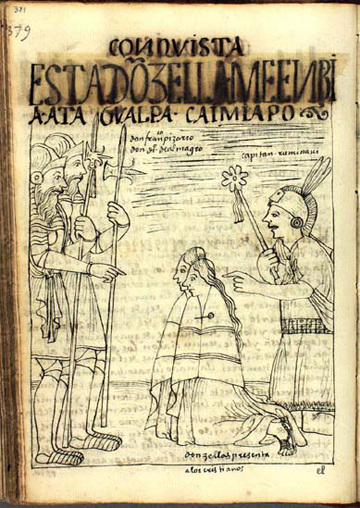 381
379
CONQVISTA
ESTAD
A ATAGVALPA·CAIMIAPO
don franco pizarro
don di° de almagro
capitan·ruminaui
donzellas presenta
a los cristianos
el